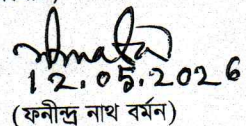 12.05.2026
(ফনীন্দ্র নাথ বর্মন)